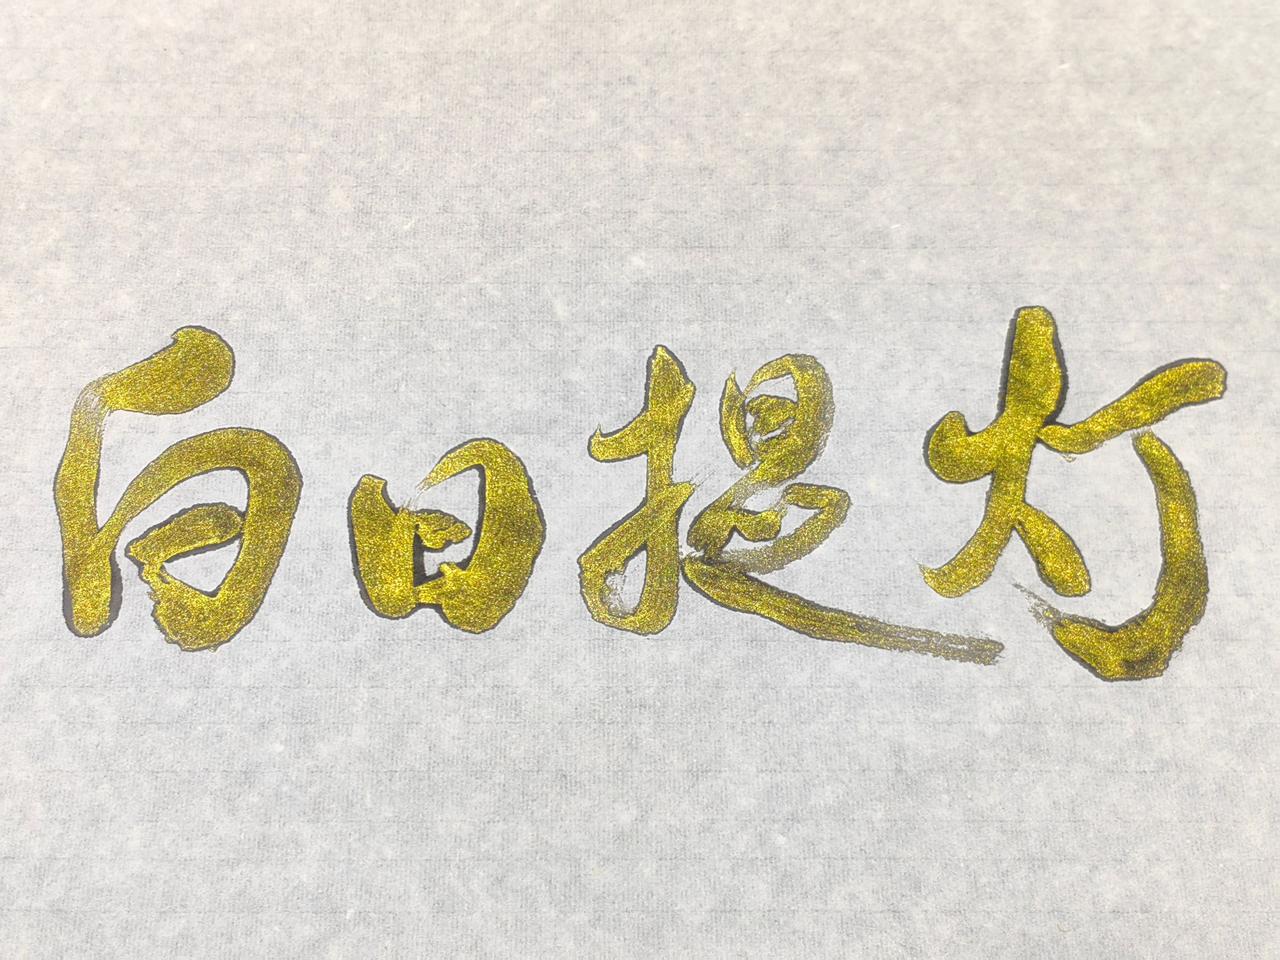 白日提灯